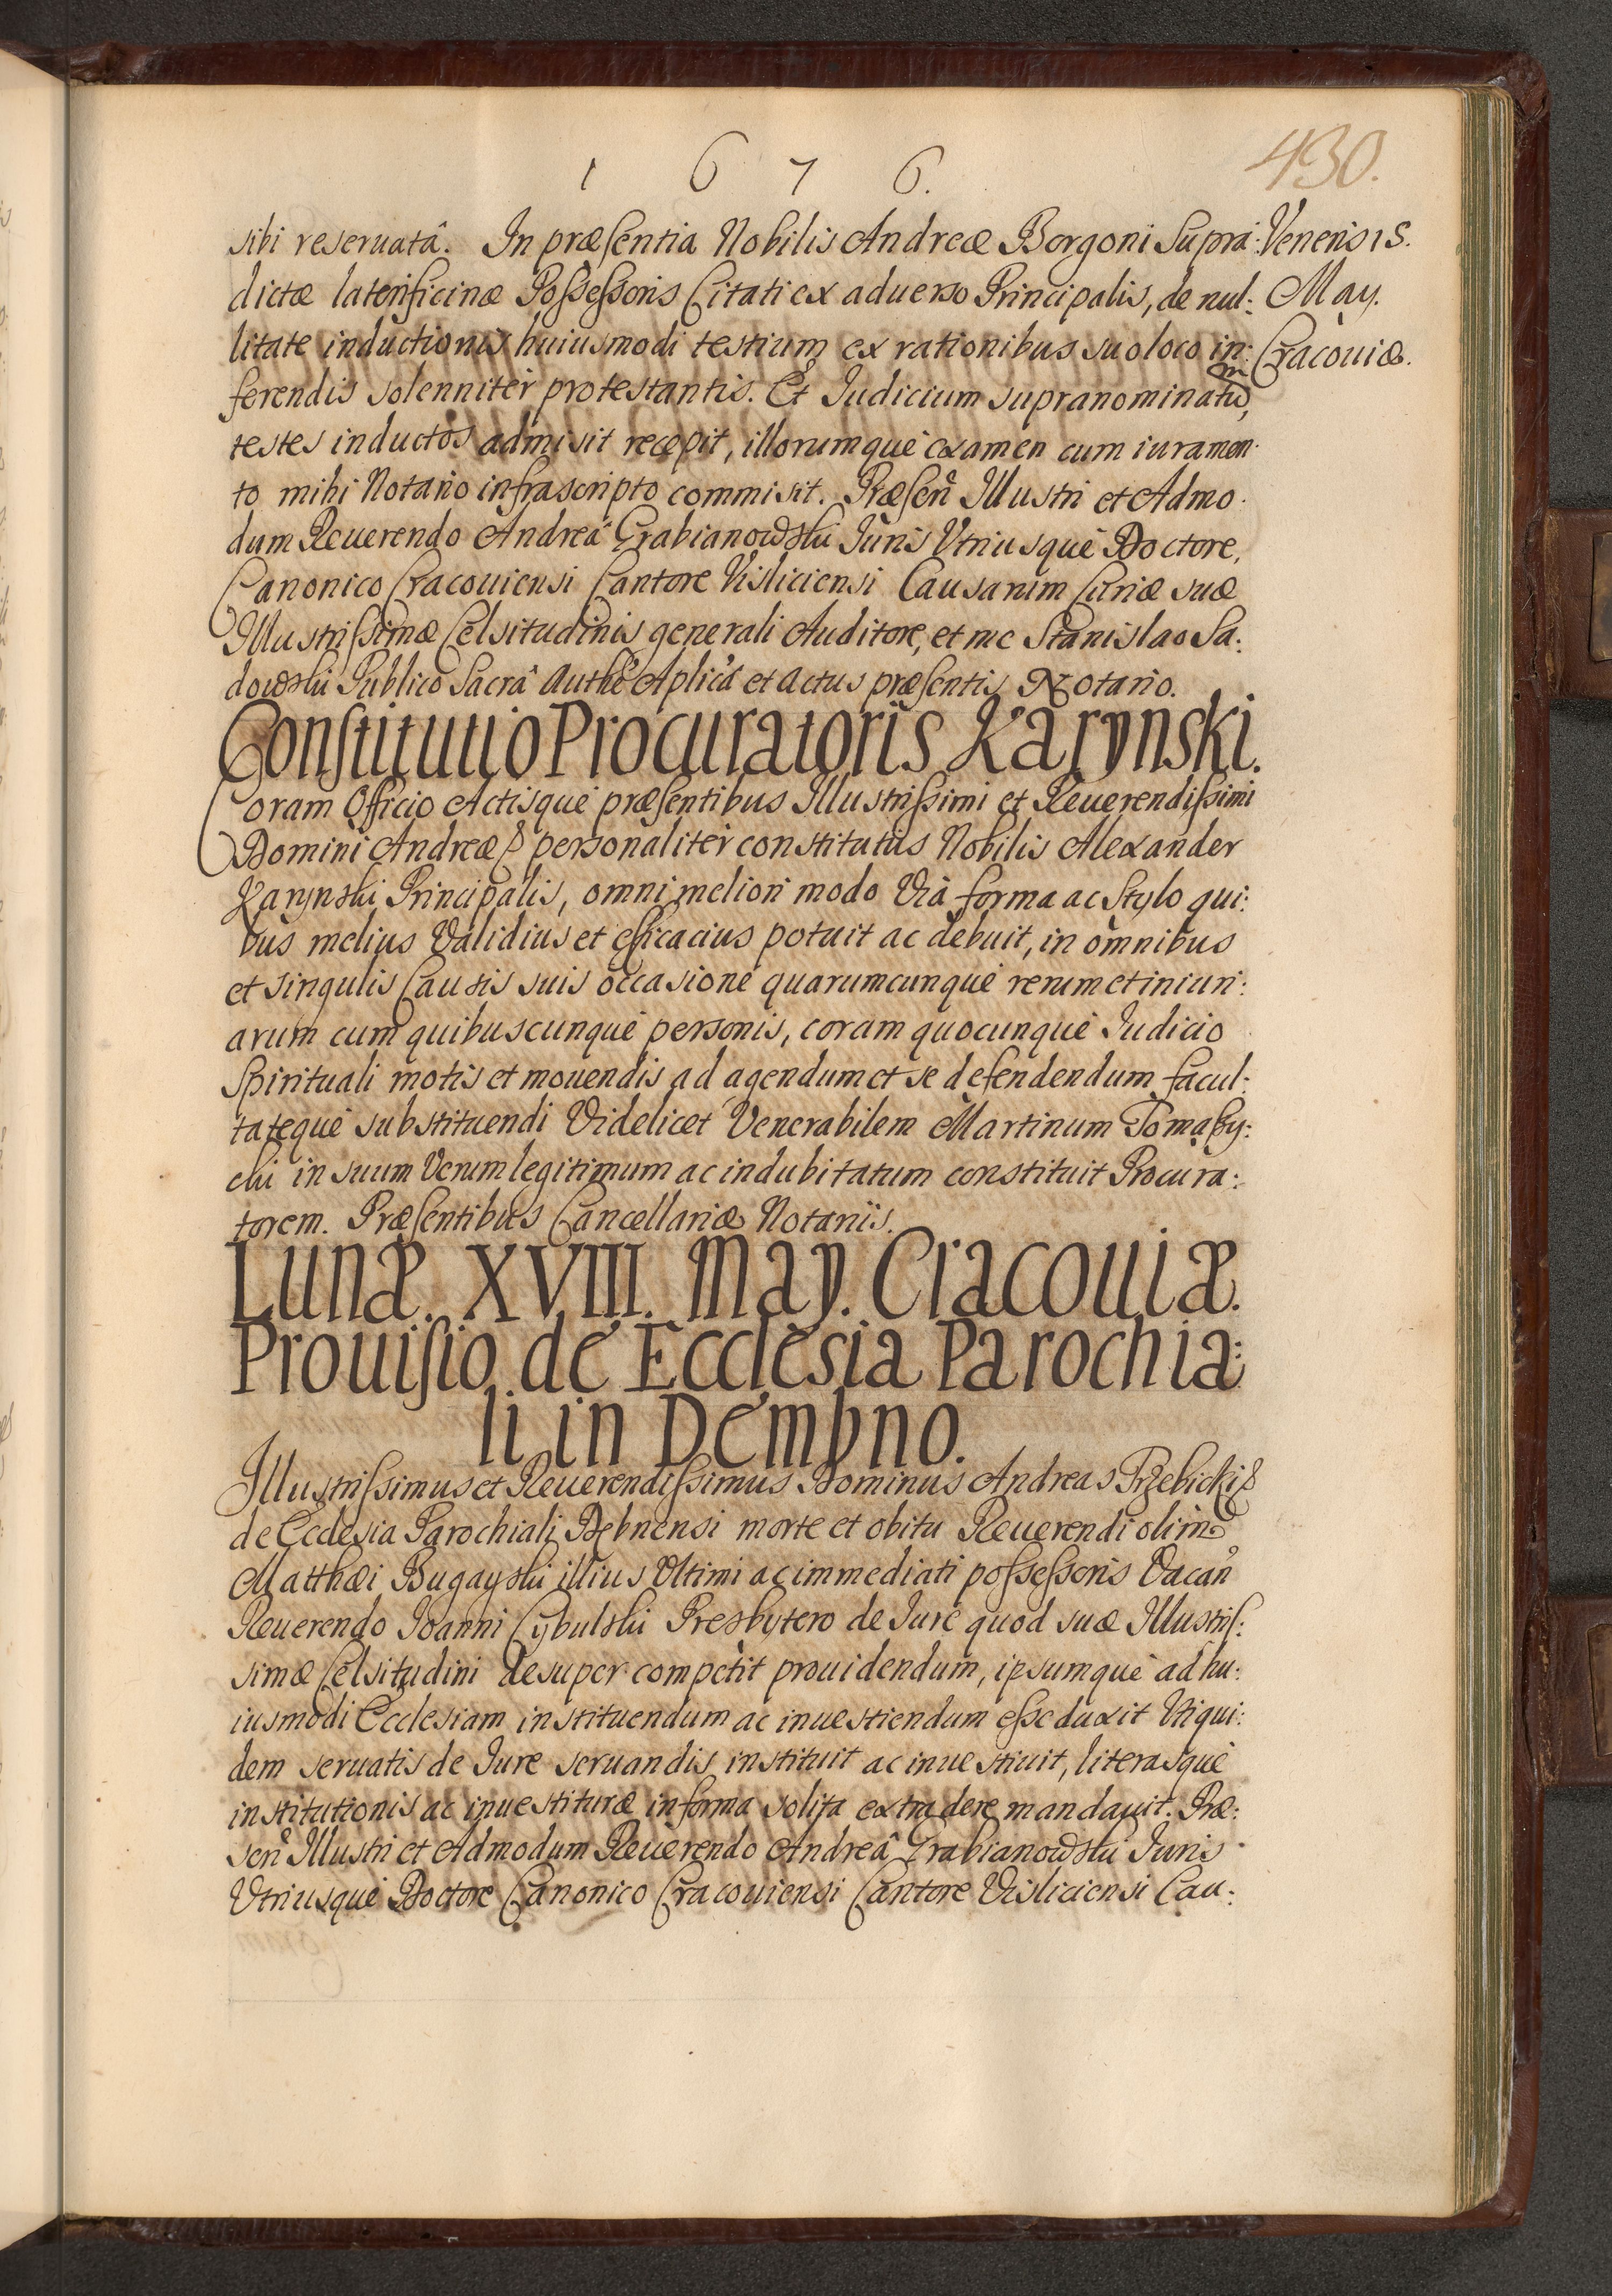 1 6 7 6.
430.
sibi reseruatâ. In præsentia Nobilis Andreæ Borgoni Supra:
Veneris 15.
dictæ laterificinæ Possessoris Citati ex aduerso Principalis, de nul:
May.
litate inductionis huiusmodi testium ex rationibus suo loco in:
Cracouiæ.
ferendis solenniter protestantis. Et Iudicium supranominatũ,
testes inductos admisit recepit, illorumque examen cum iuramen:
to mihi Notario infrascripto commisit. Præsen Illustri et Admo:
dum Reuerendo Andreâ Grabianowski Iuris Vtriusque Doctore,
Canonico Cracouiensi Cantore Visliciensi Causarum Curiæ suæ
Illustrissimæ Celsitudinis generali Auditore, et me Stanislao Sa:
dowski Publico Sacrâ Authe Aplica et Actus præsentis Notario.
Constitutio Procuratoris Karynski.
Coram Officio Actisque præsentibus Illustrissimi et Reuerendissimi
Domini Andreæ & personaliter constitutus Nobilis Alexander
Karynski Principalis, omni meliori modo Viâ forma ac Stylo qui:
bus melius Validius et efficacius potuit ac debuit, in omnibus
et singulis Causis suis occasione quarumcunque rerum et iniuri:
arum cum quibuscunque personis, coram quocunque Iudicio
Spirituali motis et mouendis ad agendum et se defendendum facul:
tateque substituendi Videlicet Venerabilem Martinum Tomaszy:
cki in suum Verum legitimum ac indubitatum constituit Procura:
torem. Præsentibus Cancellariæ Notariis.
Lunæ. XVIII. May. Cracouiæ.
Prouisio de Ecclesia Parochia:
li in Dembno.
Illustrissimus et Reuerendissimus Dominus Andreas Trzebicki &
de Ecclesia Parochiali Dębnensi morte et obitu Reuerendi olim
Matthæi Bugayski illius Vltimi ac immediati possessoris Vacan
Reuerendo Ioanni Cybulski Presbytero de Iure quod suæ Illustris:
simæ Celsitudini desuper competit prouidendum, ipsumque ad hu:
iusmodi Ecclesiam instituendum ac inuestiendum esse duxit Vti qui:
dem seruatis de Iure seruandis instituit ac inuestiuit, literasque
institutionis ac inuestituræ in forma solita extradere mandauit. Præ:
sen Illustri et Admodum Reuerendo Andreâ Grabianowski Iuris
Vtriusque Doctore Canonico Cracouiensi Cantore Visliciensi Cau: